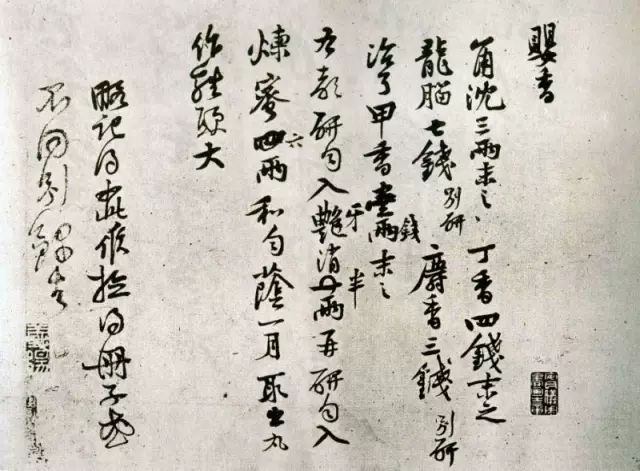 嬰香
角沈三兩末之 丁香四錢末之
龍腦七錢別研 麝香三錢別研
治了甲香壹兩錢末之
右都研勻入艷消半兩再研勻入
牙半
煉蜜四兩和勻蔭一月取出丸
六
作雞頭大
略記得此候檢得冊子或
不同別